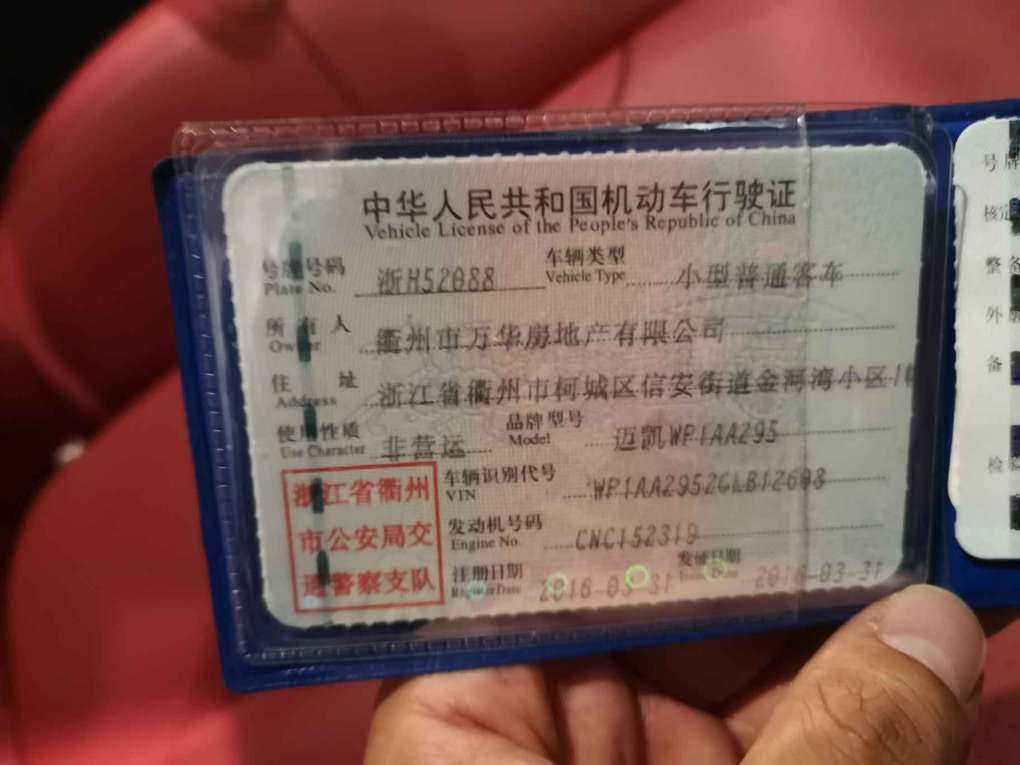 中华人民共和国机动车行驶证
Vehicle License of the People's Republic of China
号牌号码 浙H52088 车辆类型 小型普通客车
Plate No. Vehicle Type
所有人 衢州市万华房地产有限公司
Owner
住址 浙江省衢州市柯城区信安街道金河湾小区1
Address
使用性质 非营运 品牌型号 迈凯WP1AA295
Use Character Model
浙江省衢州
市公安局交
通警察支队
车辆识别代号 WP1AA2952GLB12608
VIN
发动机号码 CNC152319
Engine No.
注册日期 2016-03-31 发证日期 2016-03-31
Register Date Issue Date
号牌
核定
整备
外廓
备
检验